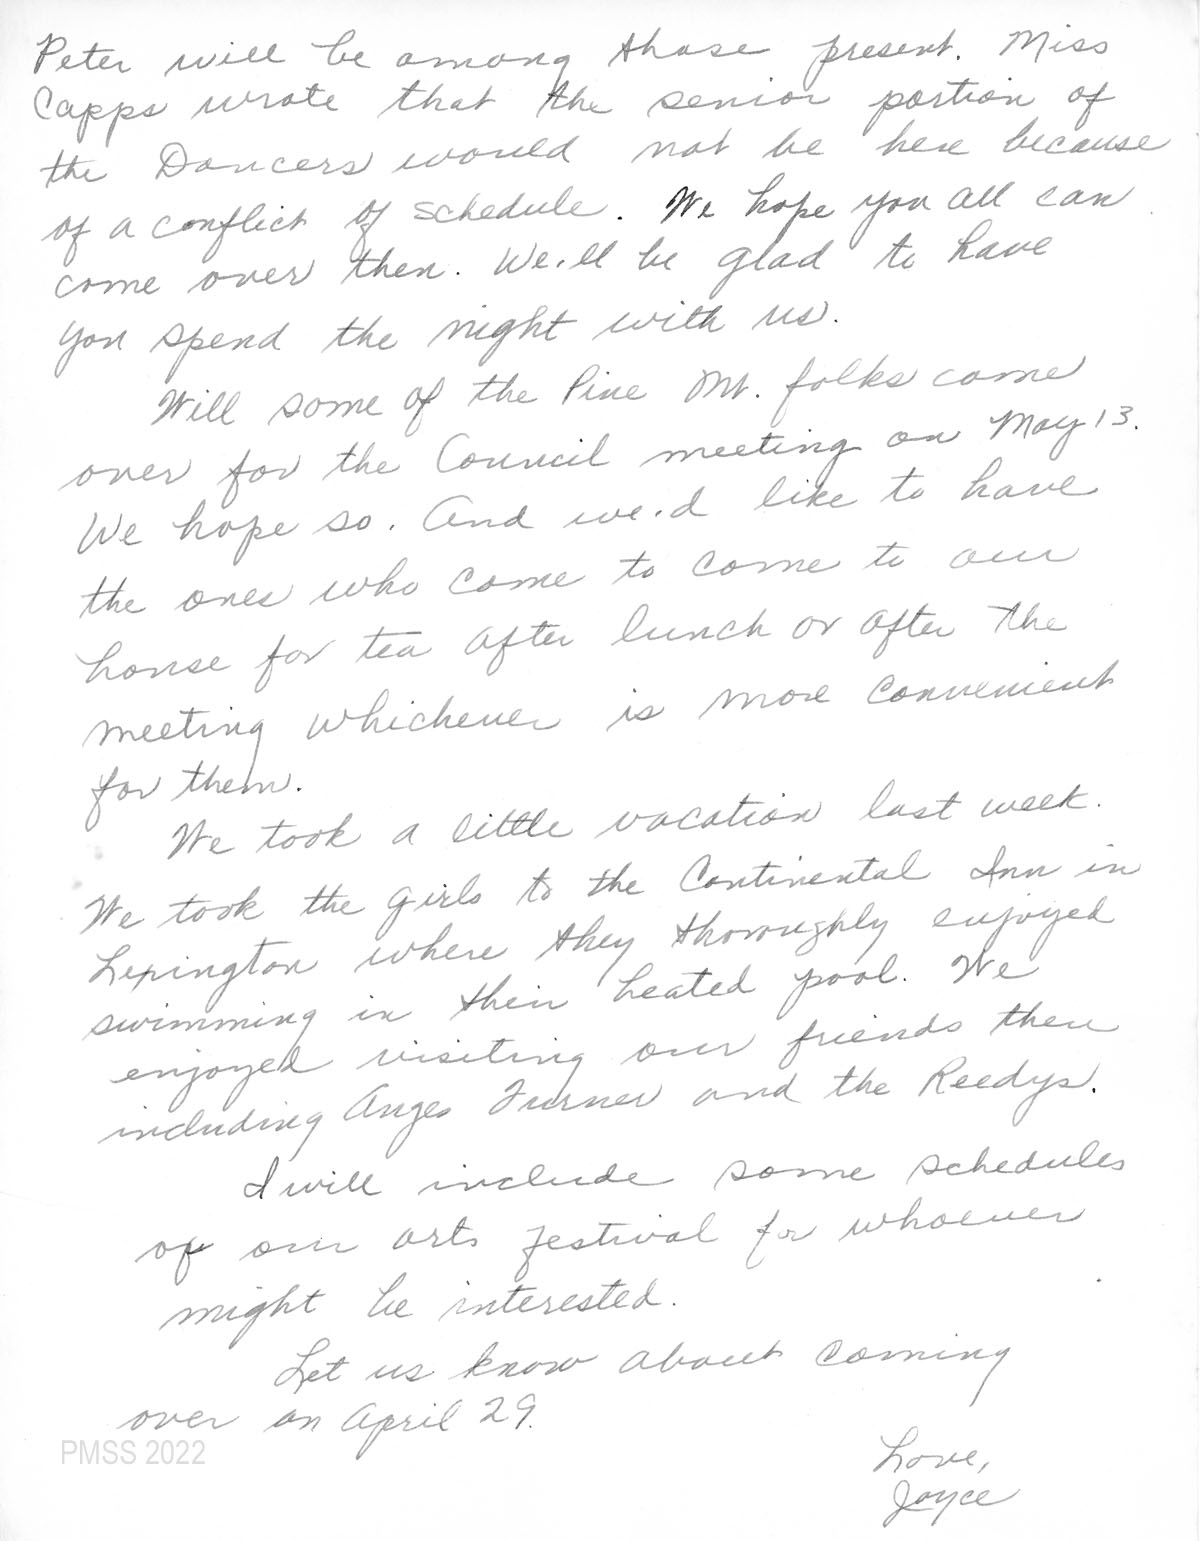 Peter will be among those present. Miss
Capps wrote that the senior portion of
the Dancers would not be here because
of a conflict of schedule. We hope you all can
come over then. We'll be glad to have
you spend the night with us.
Will some of the Pine Mt. folks come
over for the Council meeting on May 13.
We hope so. And we'd like to have
the ones who come to come to our
house for tea after lunch or after the
meeting whichever is more convenient
for them.
We took a little vacation last week.
We took the girls to the Continental Inn in
Lexington where they thoroughly enjoyed
swimming in their heated pool. We
enjoyed visiting our friends there
including Anges Turner and the Reedys.
I will include some schedules
of our arts festival for whoever
might be interested.
Let us know about coming
over on April 29.
Love,
Joyce
PMSS 2022